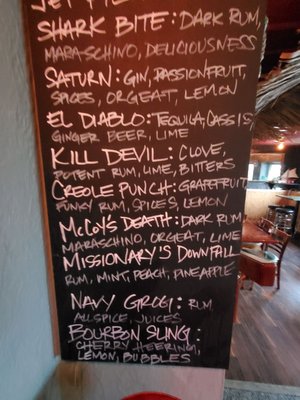 SHARK BITE: DARK RUM,
MARASCHINO, DELICIOUSNESS
SATURN: GIN, PASSIONFRUIT,
SPICES, ORGEAT, LEMON
EL DIABLO: TEQUILA, CASSIS
GINGER BEER, LIME
KILL DEVIL: CLOVE,
POTENT RUM, LIME, BITTERS
CREOLE PUNCH: GRAPEFRUIT,
FUNKY RUM, SPICES, LEMON
MCCOY'S DEATH: DARK RUM
MARASCHINO, ORGEAT, LIME
MISSIONARY'S DOWNFALL
RUM, MINT, PEACH, PINEAPPLE
NAVY GROG: RUM
ALLSPICE, JUICES
BOURBON SLING:
CHERRY HEERING,
LEMON, BUBBLES